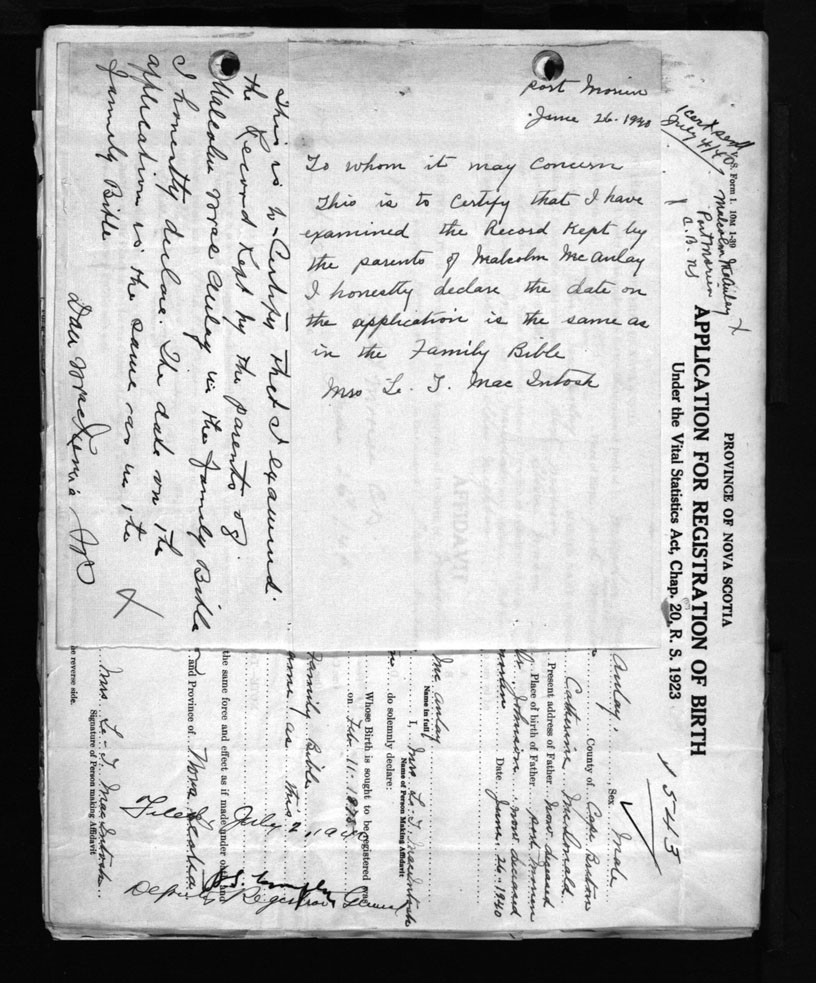 Port Morien
June 26-1940
To whom it may concern
This is to certify that I have
examined the Record Kept by
the parents of Malcolm McAulay
I honestly declare the date on
the application is the same as
in the Family Bible
Mrs L. J. MacIntosh
This is to Certify that I examined
the Record Kept by the parents of
Malcolm MacAulay in the Family Bible
I honestly declare. The date on the
application is the same as in the
Family Bible
Dan
1 cert sent
July 4/40
Form 1. 10M 1-39
Malcolm McAuley
Port Morien
C.B. NS
PROVINCE OF NOVA SCOTIA
APPLICATION FOR REGISTRATION OF BIRTH
Under the Vital Statistics Act, Chap. 20, R. S. 1923
1543
Aulay, Sex Male
County of Cape Breton
Catherine McDonald
Present address of Father now deceased
Place of birth of Father Port Morien
Johnson now deceased
Date June 26-1940
McAulay
Name in full
I, Mrs. L. J. MacIntosh
Name of Person Making Affidavit
do solemnly declare:
Whose Birth is sought to be registered was
on Feb. 11-
Family Bible
same as this
the same force and effect as if made under oath and
and Province of Nova Scotia
Filed July
Deputy Registrar General
Mrs. L. J. MacIntosh
Signature of Person making Affidavit
he reverse side.